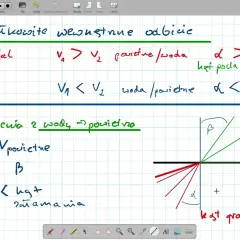 łkowite wewnętrzne odbicie
v₁ > v₂ powietrze/woda α >
kąt pada
v₁ < v₂ woda/powietrze α <
z wody → powietrza
v powietrze
β
< kąt
załamania
β
α
kąt gra